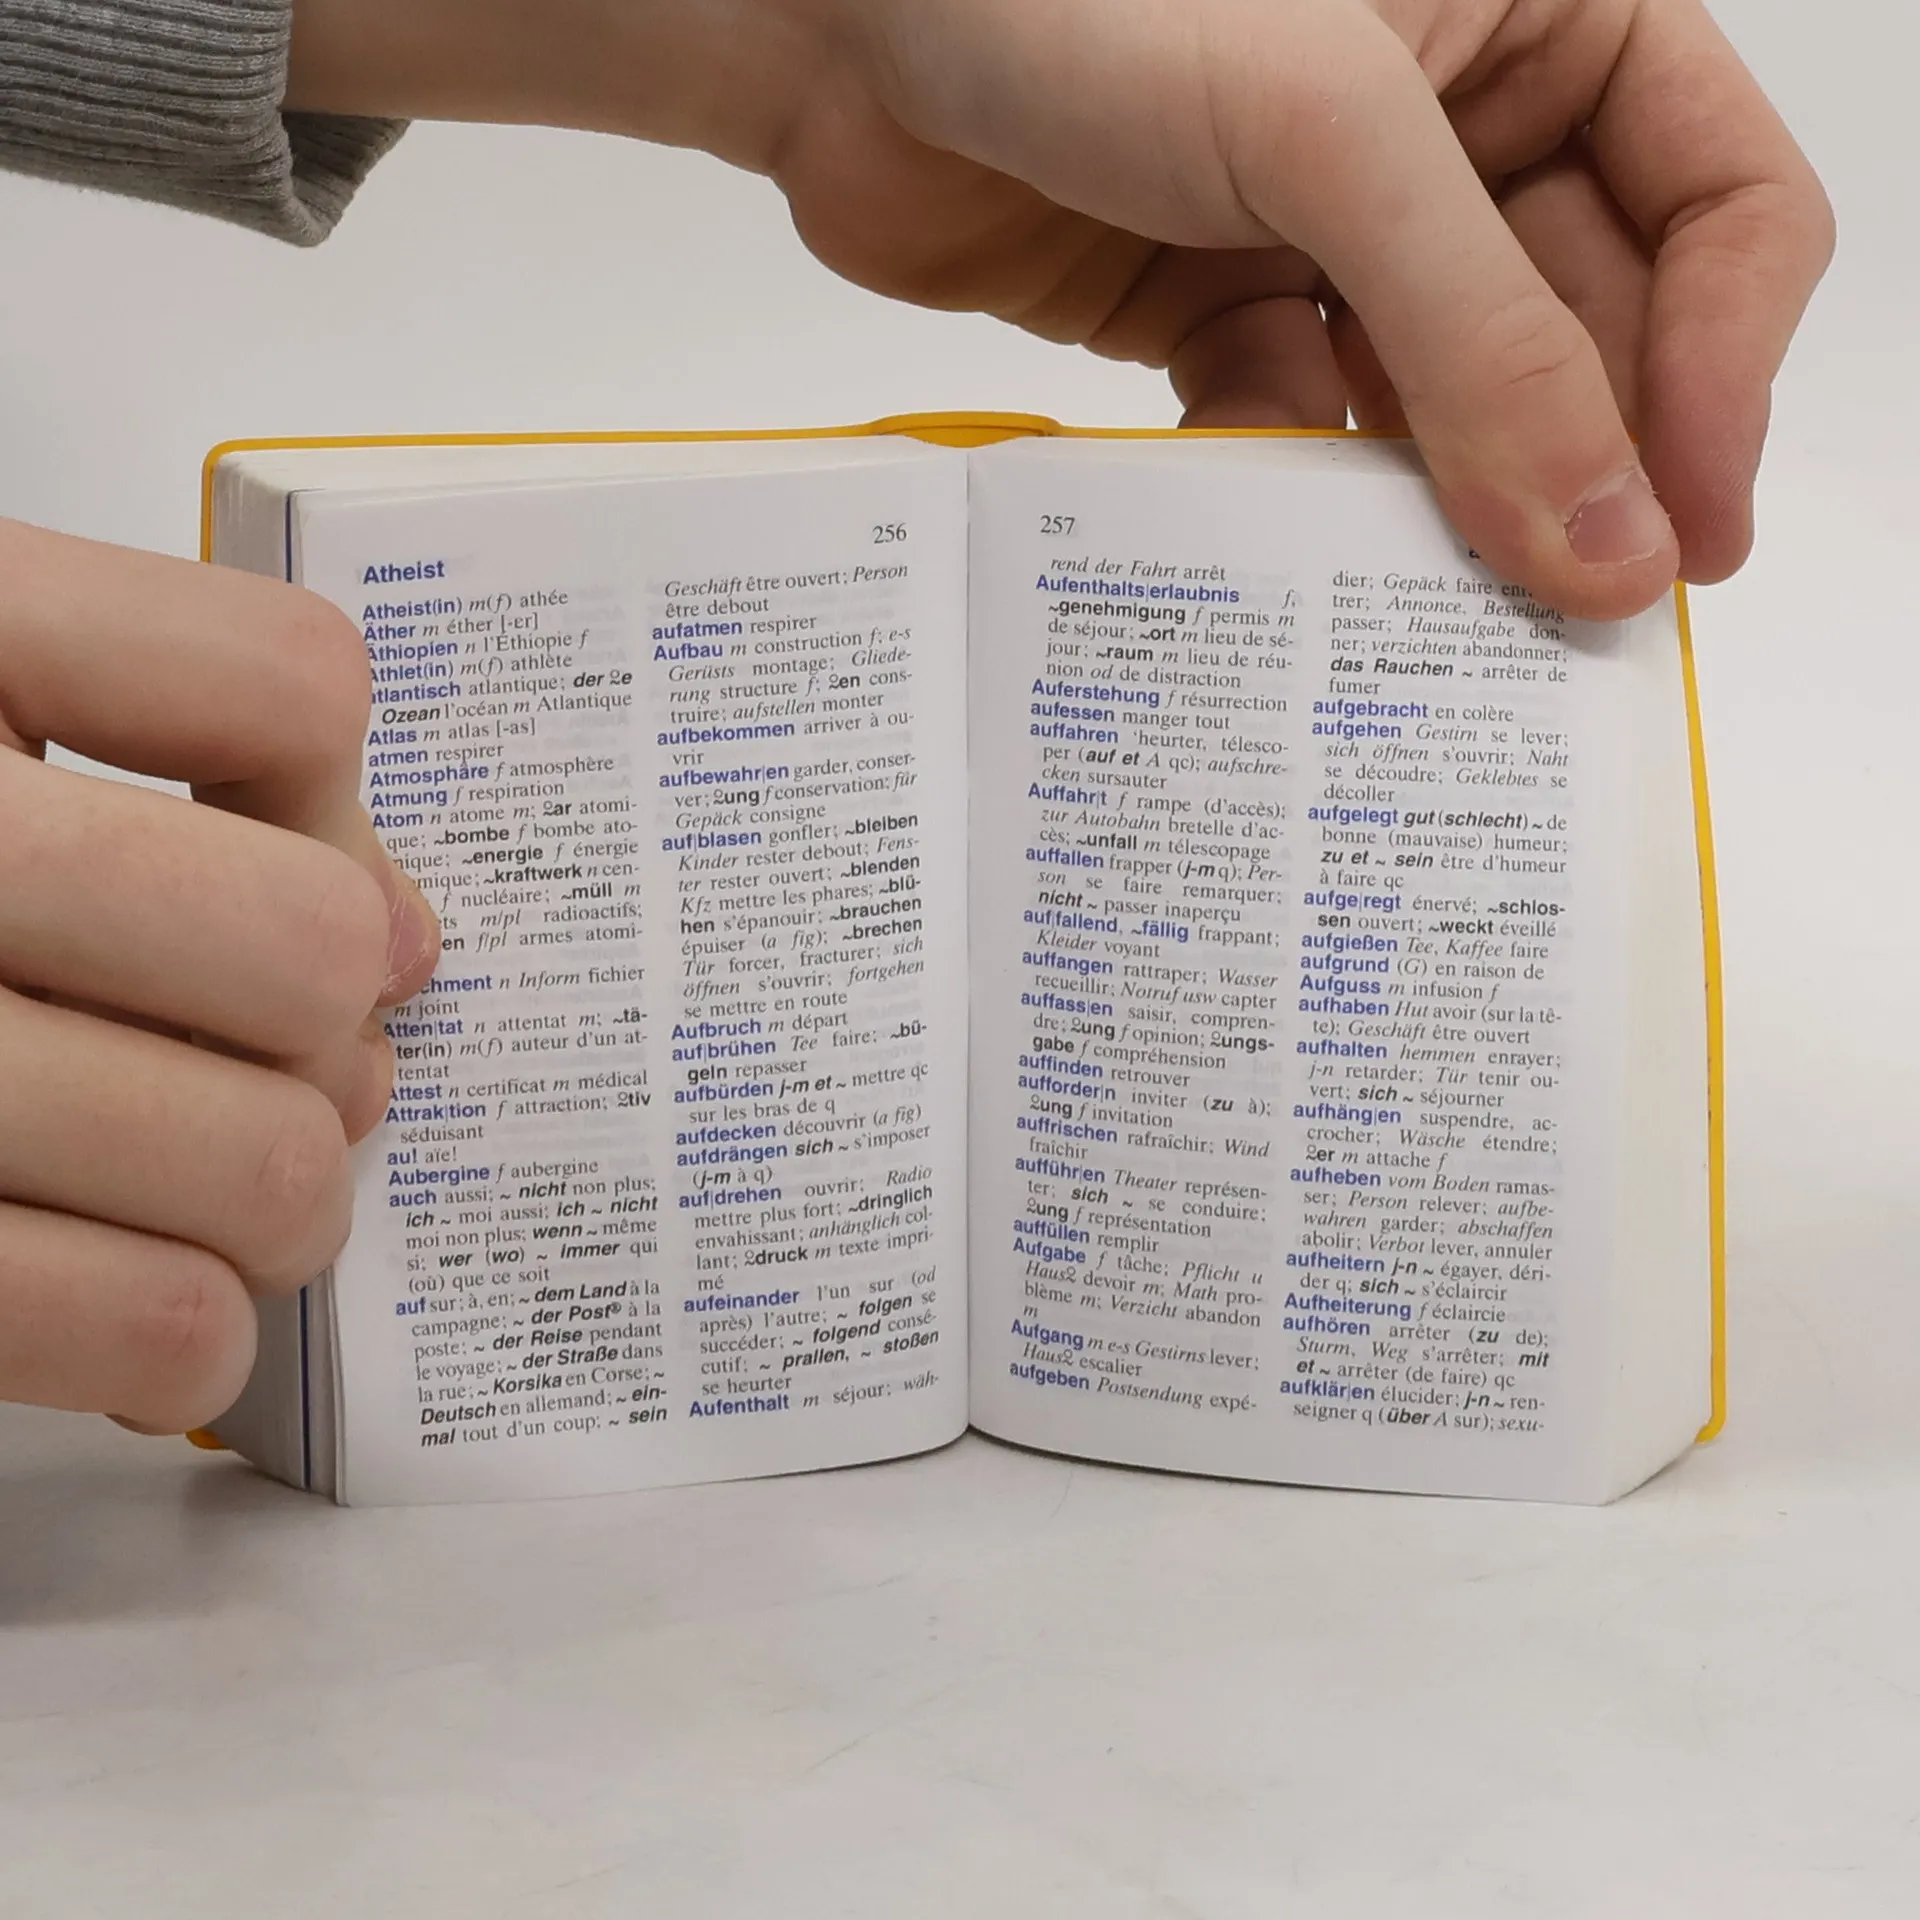 256
Atheist
Atheist(in) m(f) athée
Äther m éther [-ɛr]
Äthiopien n l'Éthiopie f
Athlet(in) m(f) athlète
atlantisch atlantique; der 2e
Ozean l'océan m Atlantique
Atlas m atlas [-as]
atmen respirer
Atmosphäre f atmosphère
Atmung f respiration
Atom n atome m; 2ar atomi-
que; ~bombe f bombe ato-
mique; ~energie f énergie
mique; ~kraftwerk n cen-
f nucléaire; ~müll m
m/pl radioactifs;
en f/pl armes atomi-
n Inform fichier
m joint
Atten|tat n attentat m; ~tä-
ter(in) m(f) auteur d'un at-
tentat
Attest n certificat m médical
Attrak|tion f attraction; 2tiv
séduisant
au! aïe!
Aubergine f aubergine
auch aussi; ~ nicht non plus;
ich ~ moi aussi; ich ~ nicht
moi non plus; wenn ~ même
si; wer (wo) ~ immer qui
(où) que ce soit
auf sur; à, en; ~ dem Land à la
campagne; ~ der Post® à la
poste; ~ der Reise pendant
le voyage; ~ der Straße dans
la rue; ~ Korsika en Corse; ~
Deutsch en allemand; ~ ein-
mal tout d'un coup; ~ sein
Geschäft être ouvert; Person
être debout
aufatmen respirer
Aufbau m construction f; e-s
Gerüsts montage; Gliede-
rung structure f; 2en cons-
truire; aufstellen monter
aufbekommen arriver à ou-
vrir
aufbewahr|en garder, conser-
ver; 2ung f conservation; für
Gepäck consigne
auf|blasen gonfler; ~bleiben
Kinder rester debout; Fens-
ter rester ouvert; ~blenden
Kfz mettre les phares; ~blü-
hen s'épanouir; ~brauchen
épuiser (a fig); ~brechen
Tür forcer, fracturer; sich
öffnen s'ouvrir; fortgehen
se mettre en route
Aufbruch m départ
auf|brühen Tee faire; ~bü-
geln repasser
aufbürden j-m et ~ mettre qc
sur les bras de q
aufdecken découvrir (a fig)
aufdrängen sich ~ s'imposer
(j-m à q)
auf|drehen ouvrir; Radio
mettre plus fort; ~dringlich
envahissant; anhänglich col-
lant; 2druck m texte impri-
mé
aufeinander l'un sur (od
après) l'autre; ~ folgen se
succéder; ~ folgend consé-
cutif; ~ prallen, ~ stoßen
se heurter
Aufenthalt m séjour; wäh-
257
rend der Fahrt arrêt
Aufenthalts|erlaubnis f,
~genehmigung f permis m
de séjour; ~ort m lieu de sé-
jour; ~raum m lieu de réu-
nion od de distraction
Auferstehung f résurrection
aufessen manger tout
auffahren 'heurter, télesco-
per (auf et A qc); aufschre-
cken sursauter
Auffahr|t f rampe (d'accès);
zur Autobahn bretelle d'ac-
cès; ~unfall m télescopage
auffallen frapper (j-m q); Per-
son se faire remarquer;
nicht ~ passer inaperçu
auf|fallend, ~fällig frappant;
Kleider voyant
auffangen rattraper; Wasser
recueillir; Notruf usw capter
auffass|en saisir, compren-
dre; 2ung f opinion; 2ungs-
gabe f compréhension
auffinden retrouver
aufforder|n inviter (zu à);
2ung f invitation
auffrischen rafraîchir; Wind
fraîchir
aufführ|en Theater représen-
ter; sich ~ se conduire;
2ung f représentation
auffüllen remplir
Aufgabe f tâche; Pflicht u
Haus2 devoir m; Math pro-
blème m; Verzicht abandon
m
Aufgang m e-s Gestirns lever;
Haus2 escalier
aufgeben Postsendung expé-
dier; Gepäck faire
trer; Annonce, Bestellung
passer; Hausaufgabe don-
ner; verzichten abandonner;
das Rauchen ~ arrêter de
fumer
aufgebracht en colère
aufgehen Gestirn se lever;
sich öffnen s'ouvrir; Naht
se découdre; Geklebtes se
décoller
aufgelegt gut (schlecht) ~ de
bonne (mauvaise) humeur;
zu et ~ sein être d'humeur
à faire qc
aufge|regt énervé; ~schlos-
sen ouvert; ~weckt éveillé
aufgießen Tee, Kaffee faire
aufgrund (G) en raison de
Aufguss m infusion f
aufhaben Hut avoir (sur la tê-
te); Geschäft être ouvert
aufhalten hemmen enrayer;
j-n retarder; Tür tenir ou-
vert; sich ~ séjourner
aufhäng|en suspendre, ac-
crocher; Wäsche étendre;
2er m attache f
aufheben vom Boden ramas-
ser; Person relever; aufbe-
wahren garder; abschaffen
abolir; Verbot lever, annuler
aufheitern j-n ~ égayer, déri-
der q; sich ~ s'éclaircir
Aufheiterung f éclaircie
aufhören arrêter (zu de);
Sturm, Weg s'arrêter; mit
et ~ arrêter (de faire) qc
aufklär|en élucider; j-n ~ ren-
seigner q (über A sur); sexu-